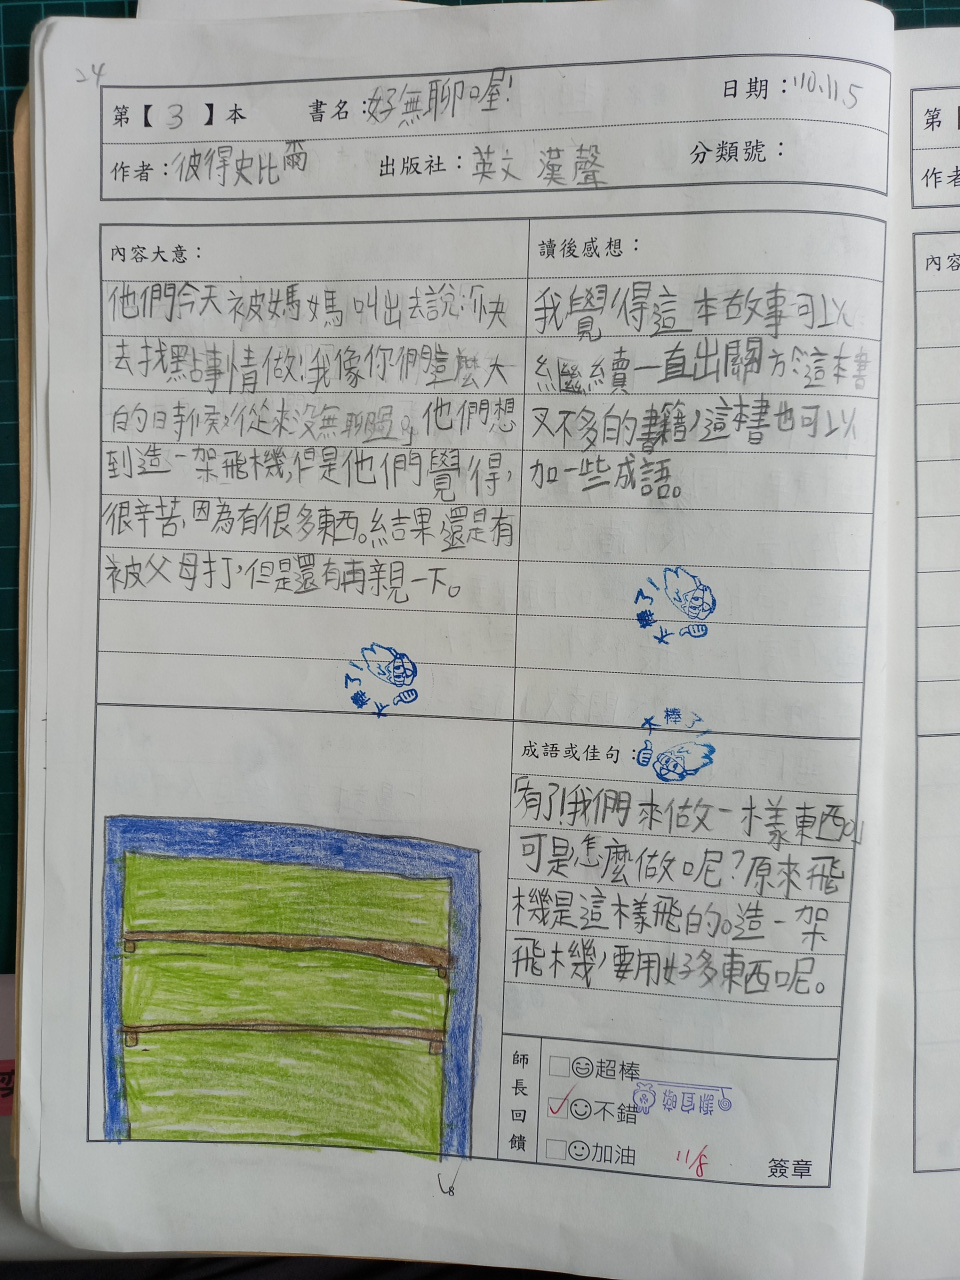 24
第【 3 】本 書名：好無聊喔! 日期：110.11.5
作者：彼得史比爾 出版社：英文漢聲 分類號：
內容大意：
他們今天被媽媽叫出去說：「快
去找點事情做!我像你們這麼大
的時候,從來沒無聊過。」他們想
到造一架飛機,但是他們覺得,
很辛苦,因為有很多東西。結果還是有
被父母打,但是還有再親一下。
讀後感想：
我覺得這本故事可以
繼續一直出關於這本書
又不多的書籍,這本書也可以
加一些成語。
太棒了!
太棒了!
太棒了!
成語或佳句：
「有了!我們來做一樣東西吧」
可是怎麼做呢?原來飛
機是這樣飛的。造一架
飛機,要用好多東西呢。
師長回饋
超棒
不錯
加油
11/8
簽章
第【
作者
內容